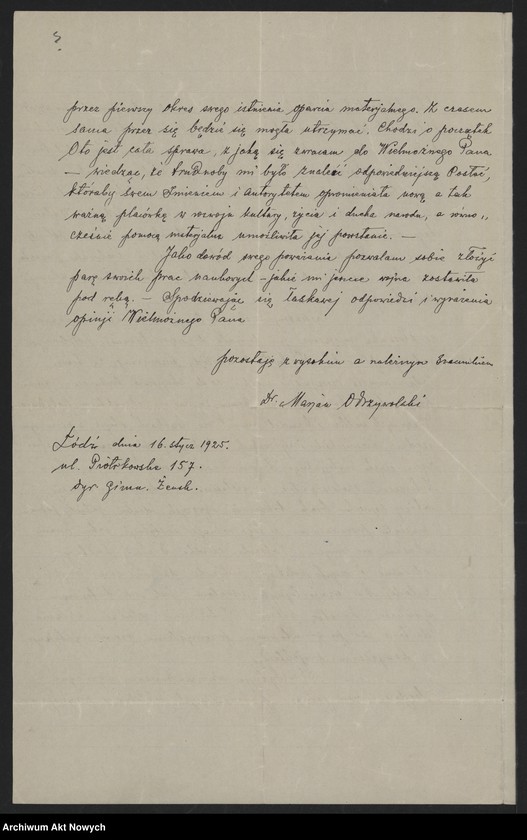 3
przez pierwszy okres swego istnienia oparcia materjalnego. Z czasem
sama przez się będzie się mogła utrzymać. Chodzi o początek
Oto jest cała sprawa, z jaką się zwracam do Wielmożnego Pana
— wiedząc, że trudnoby mi było znaleść odpowiedniejszą Postać,
któraby swem Imieniem i Autorytetem opromieniała nową a tak
ważną placówkę w rozwoju kultury, życia i ducha narodu, a równo„
cześnie pomocą materjalną umożliwiła jej powstanie. —
Jako dowód swego poważania pozwalam sobie złożyć
parę swoich prac naukowych – jakie mi jeszcze wojna zostawiła
pod ręką. — Spodziewając się łaskawej odpowiedzi i wyrażenia
opinji Wielmożnego Pana
pozostaję z wysokim a należnym Szacunkiem
Dr. Marjan Odrzywolski
Łódź dnia 16. stycz 1925.
ul. Piotrkowska 157.
dyr. gimn. Żeńsk.
Archiwum Akt Nowych